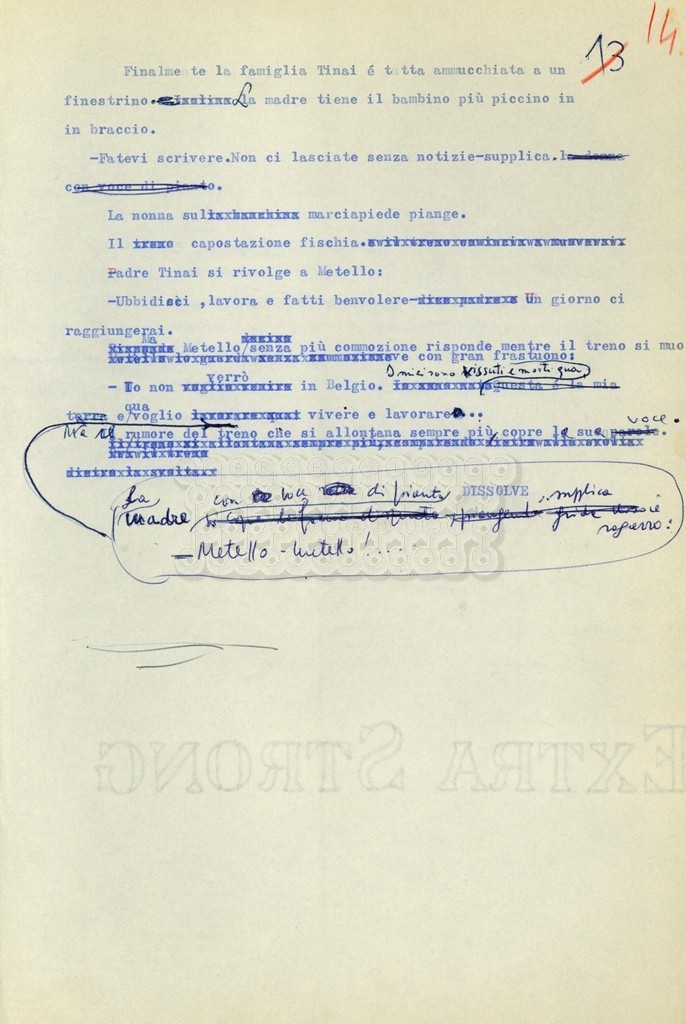 13 14
Finalmente la famiglia Tinai é tutta ammucchiata a un
finestrino. La madre tiene il bambino più piccino in
in braccio.
-Fatevi scrivere.Non ci lasciate senza notizie-supplica. la donna
con voce di pianto.
La nonna sul marciapiede piange.
Il treno capostazione fischia.
Padre Tinai si rivolge a Metello:
-Ubbidisci ,lavora e fatti benvolere- Un giorno ci
raggiungerai.
Ma
Metello/senza più commozione risponde mentre il treno si muo
ve con gran frastuono:
I miei sono vissuti e morti qua,
verrò
- Io non voglio venire in Belgio. questa é la mia
qua
terra e/voglio vivere e lavorare...
Ma il rumore del treno che si allontana sempre più copre la sua parole. voce.
DISSOLVE
La madre con voce di pianto, supplica
ragazzo:
- Metello - Metello!....
EXTRA STRONG